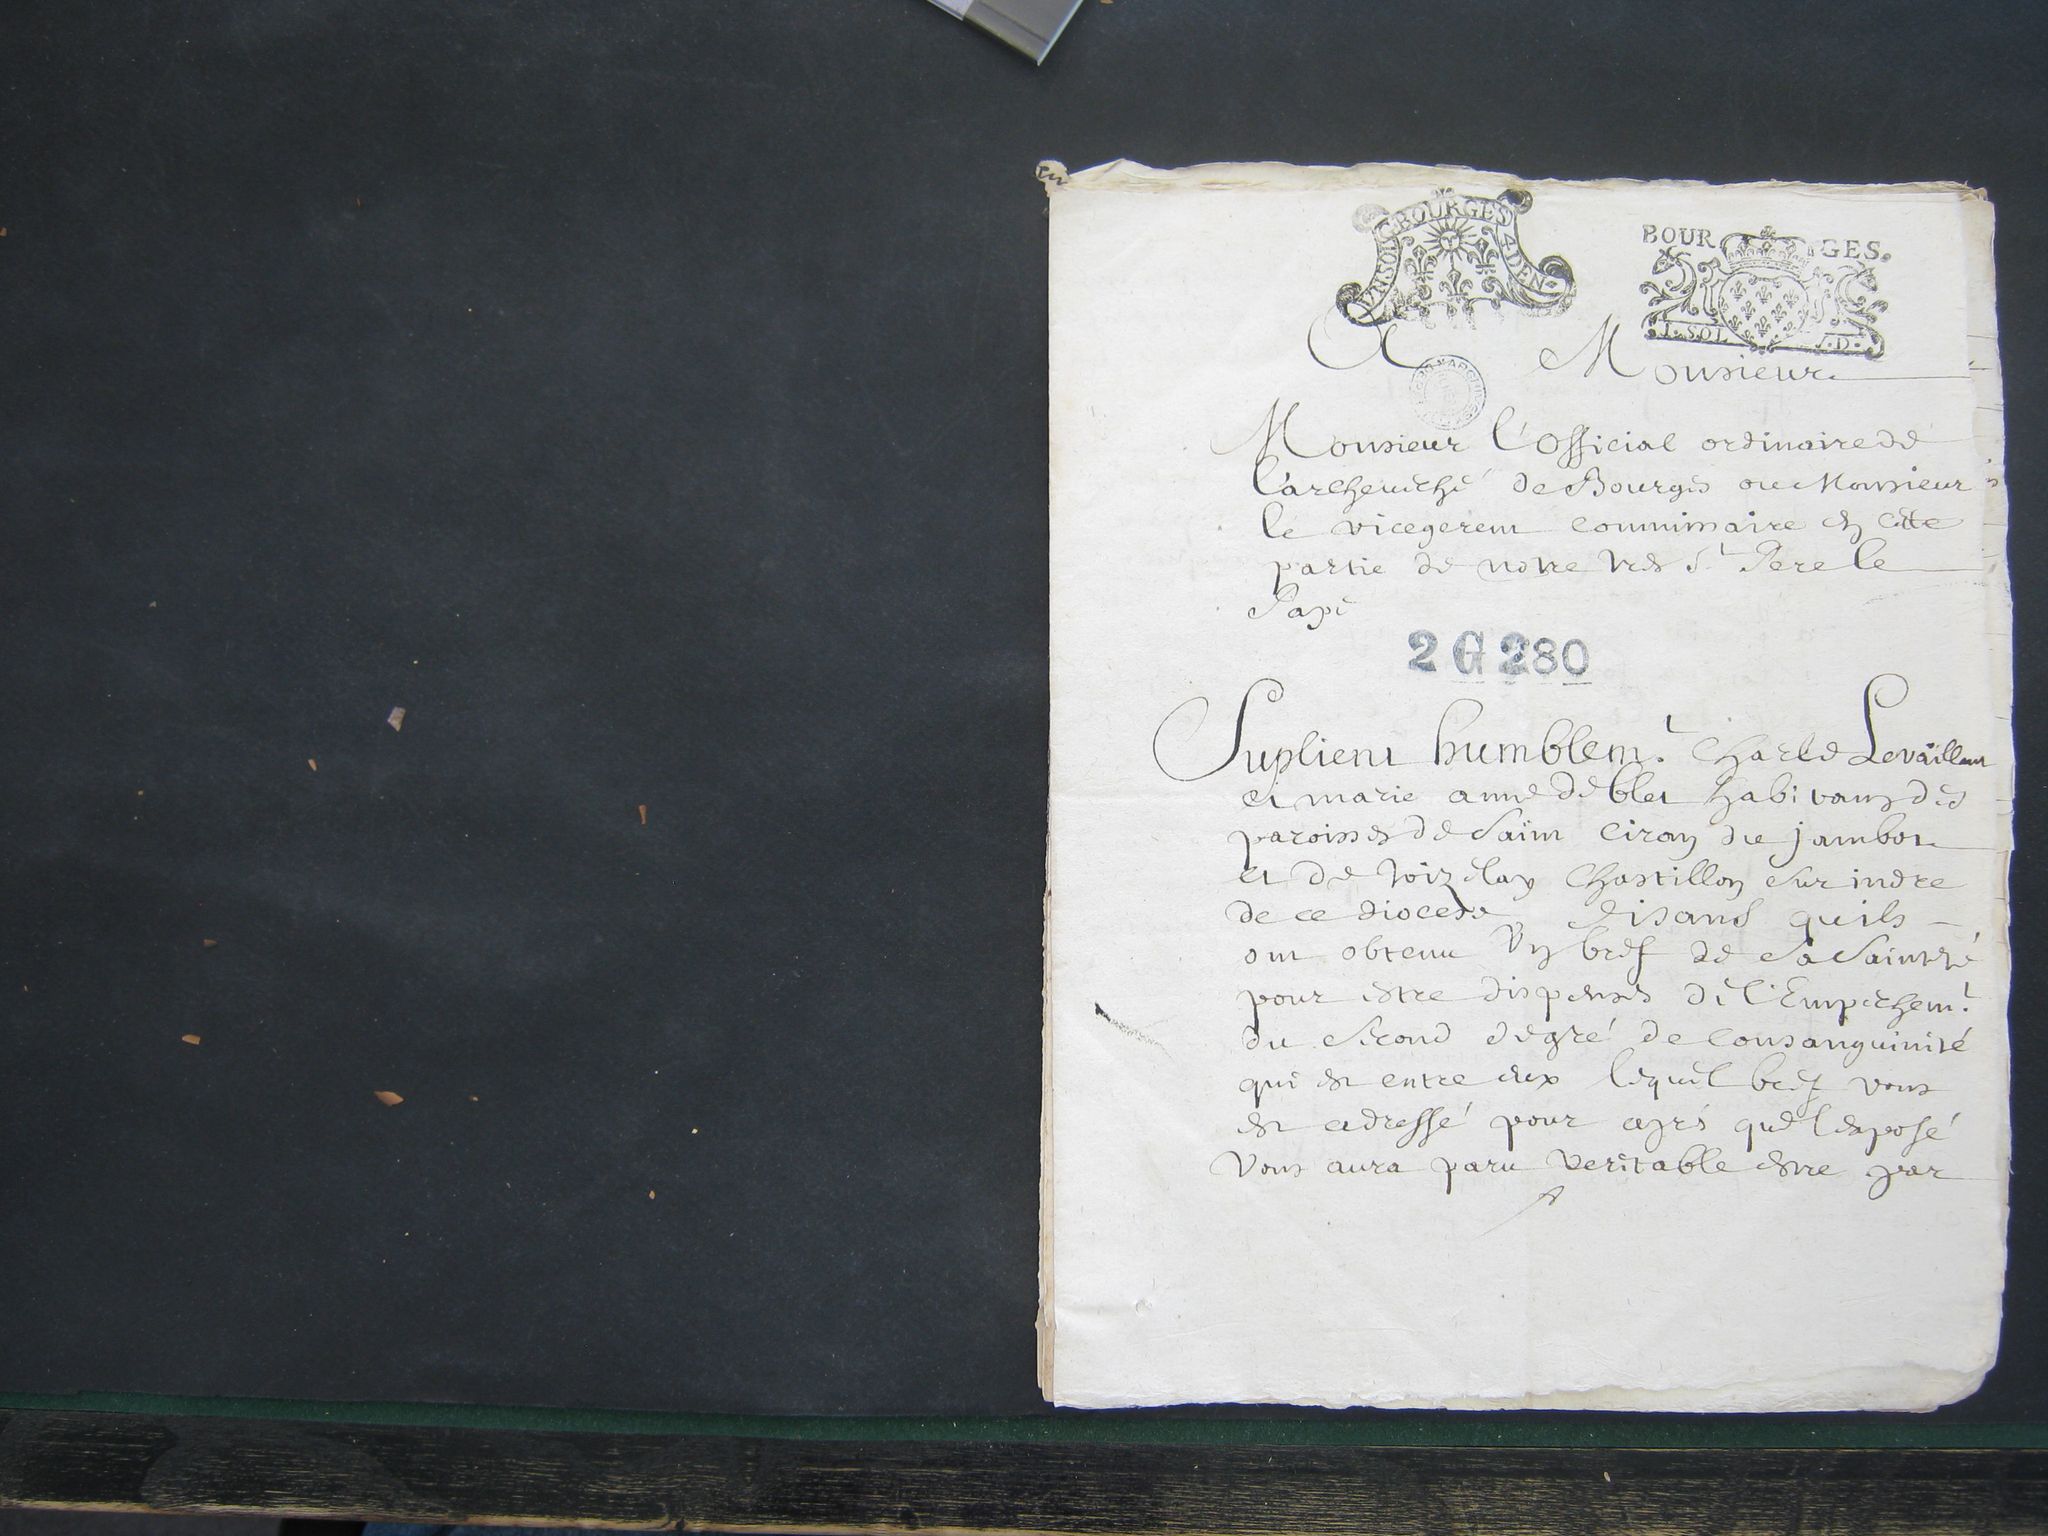 BOURGES
UN SOL
4 DEN.
BOURGES.
I. SOL
D.
A Monsieur
Monsieur l'Official ordinaire de
l'archeuéché de Bourges ou Monsieur
le vicegerent commissaire en cette
partie de notre tres St Pere le
Pape
2 G 280
Suplient humblemt. Charle Levaillant
et marie anne de blet habitans des
paroisses de Saint Ciran du jambot
et de Toizelay Chastillon sur indre
de ce diocese, disans quils
ont obtenu Un bref de Sa Sainteté
pour estre dispensés de l'Empechemt.
du second degré de consanguinité
qui est entre eux lequel bref vous
est adressé pour aprés que l'exposé
Vous aura paru veritable estre par